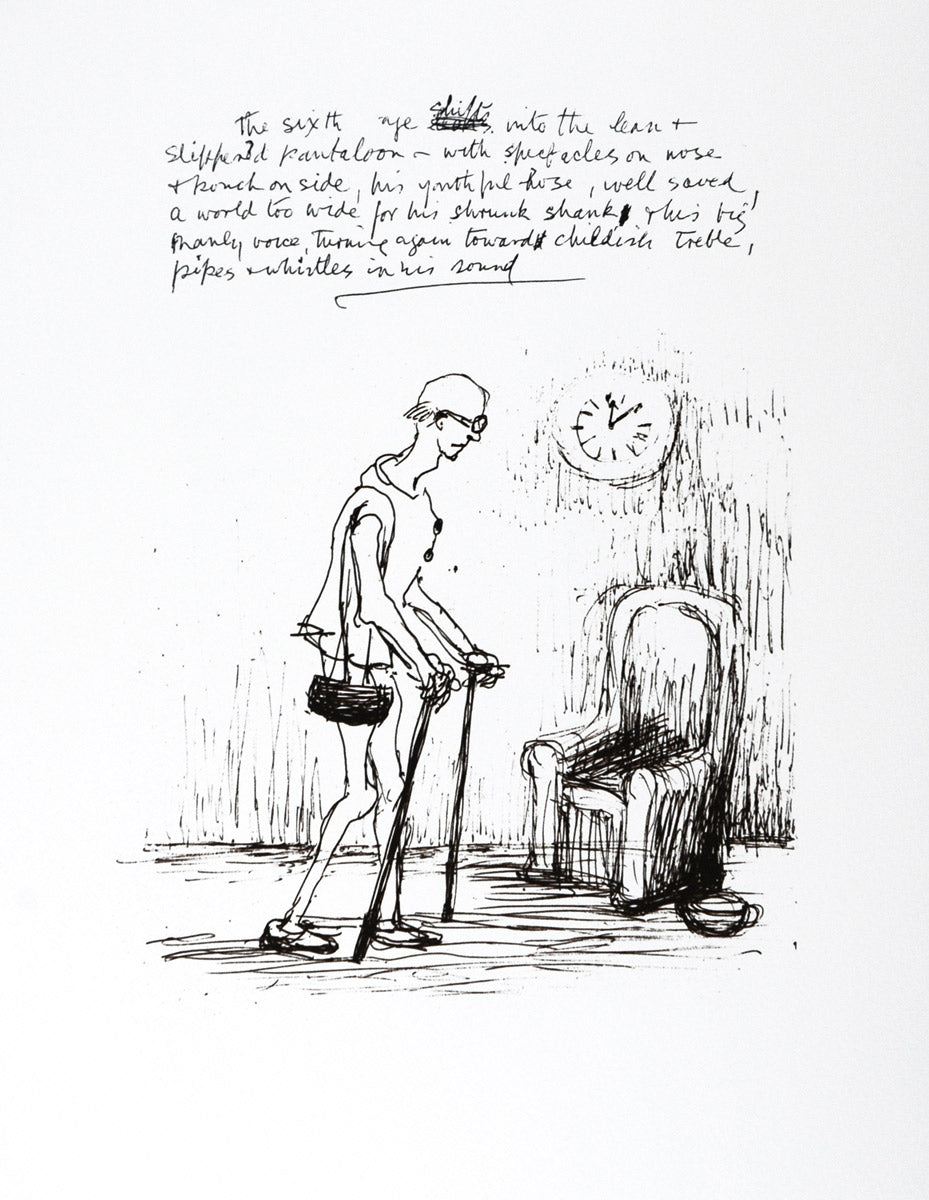 The sixth age shifts into the lean +
slipper'd pantaloon – with spectacles on nose
+ pouch on side, his youthful hose, well saved,
a world too wide for his shrunk shank, & his big
manly voice, Turning again toward childish Treble,
pipes + whistles in his sound